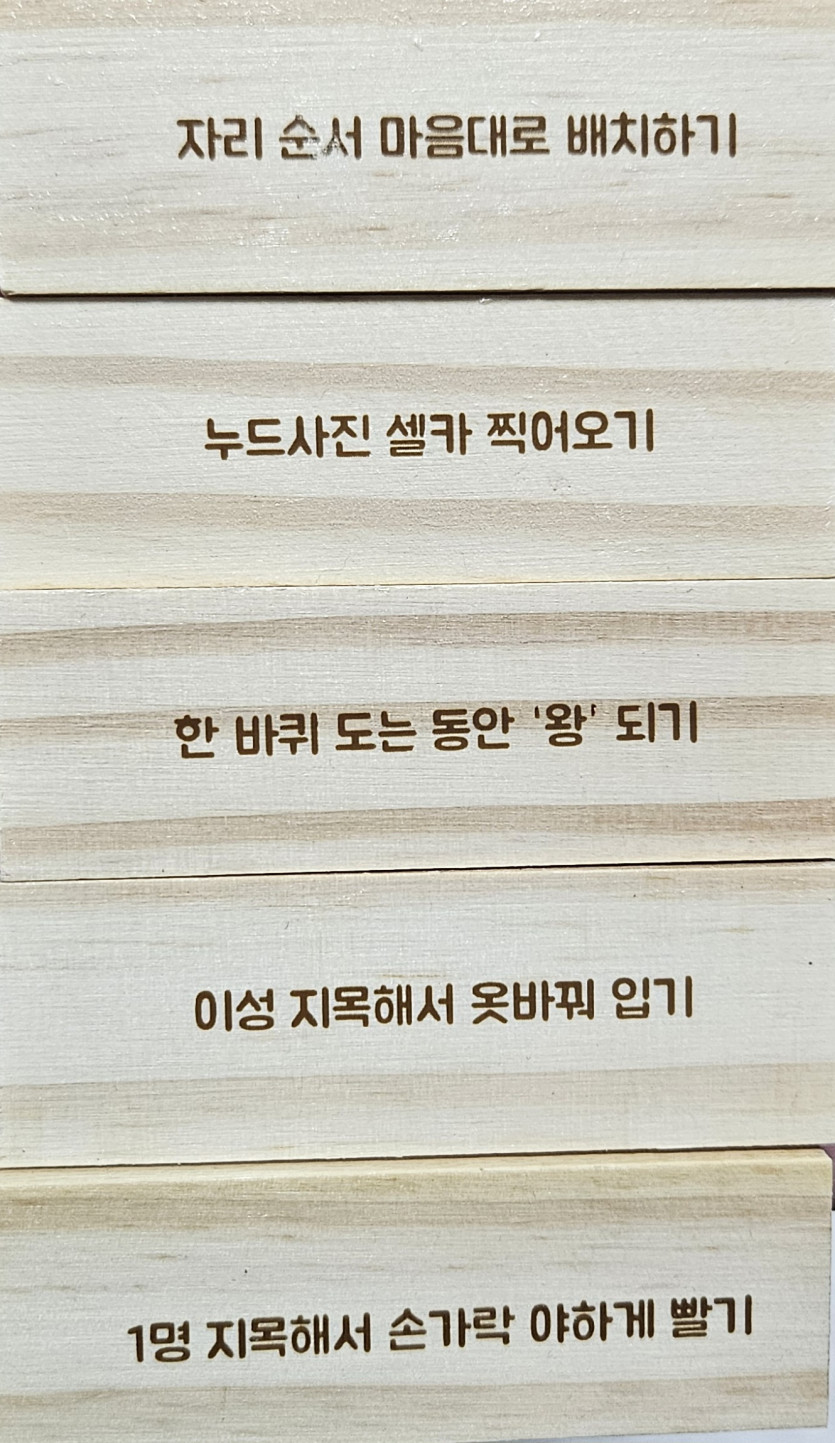 자리 순서 마음대로 배치하기
누드사진 셀카 찍어오기
한 바퀴 도는 동안 '왕' 되기
이성 지목해서 옷바꿔 입기
1명 지목해서 손가락 야하게 빨기